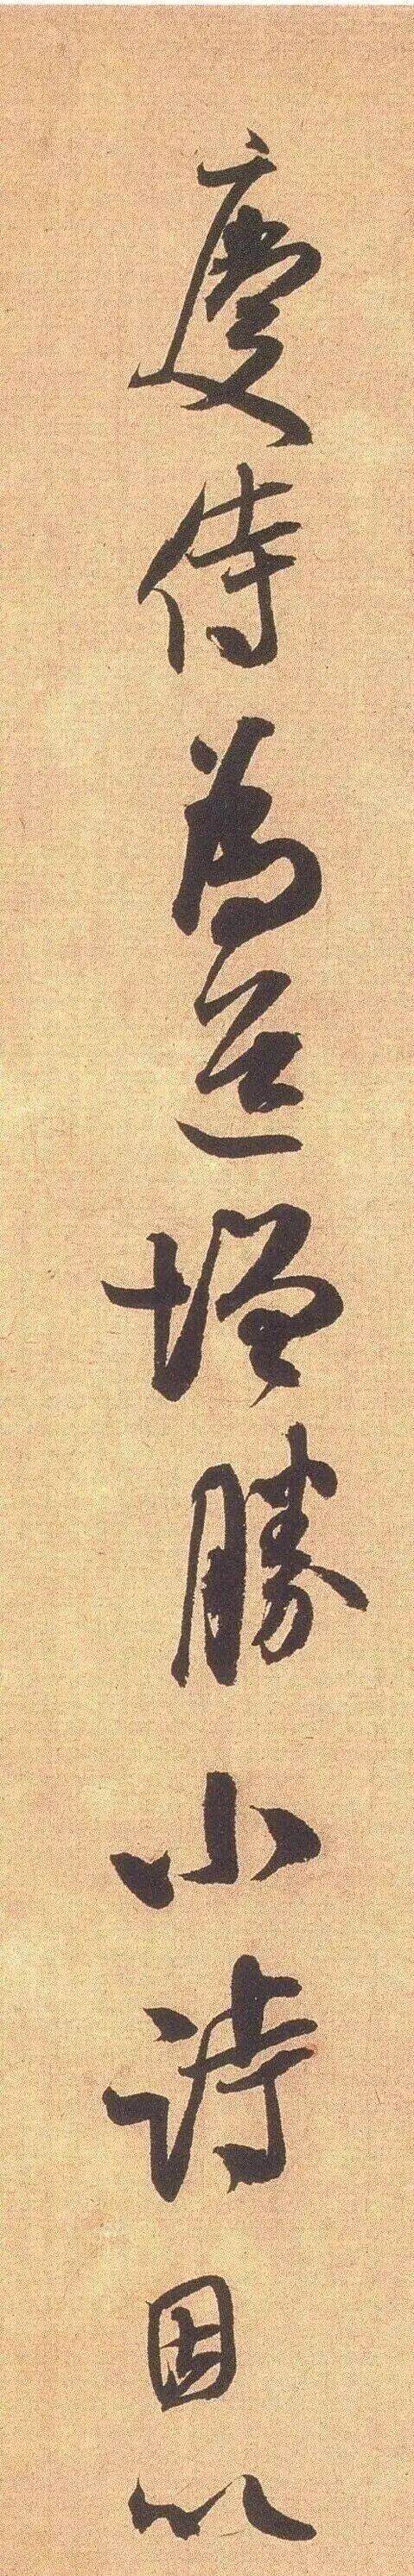 慶侍為道增勝小詩因以